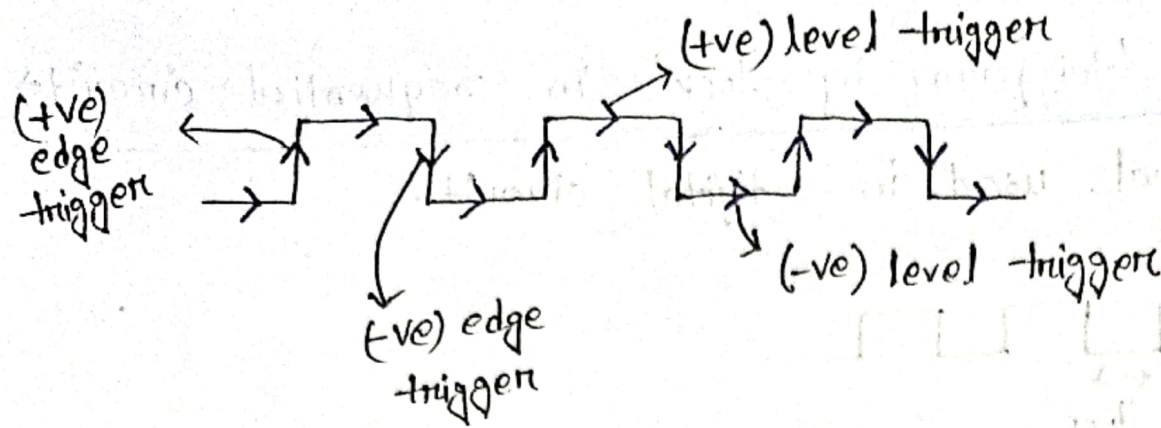 (+ve) level -trigger
(+ve)
edge
-trigger
(-ve) level -trigger
(-ve) edge
-trigger